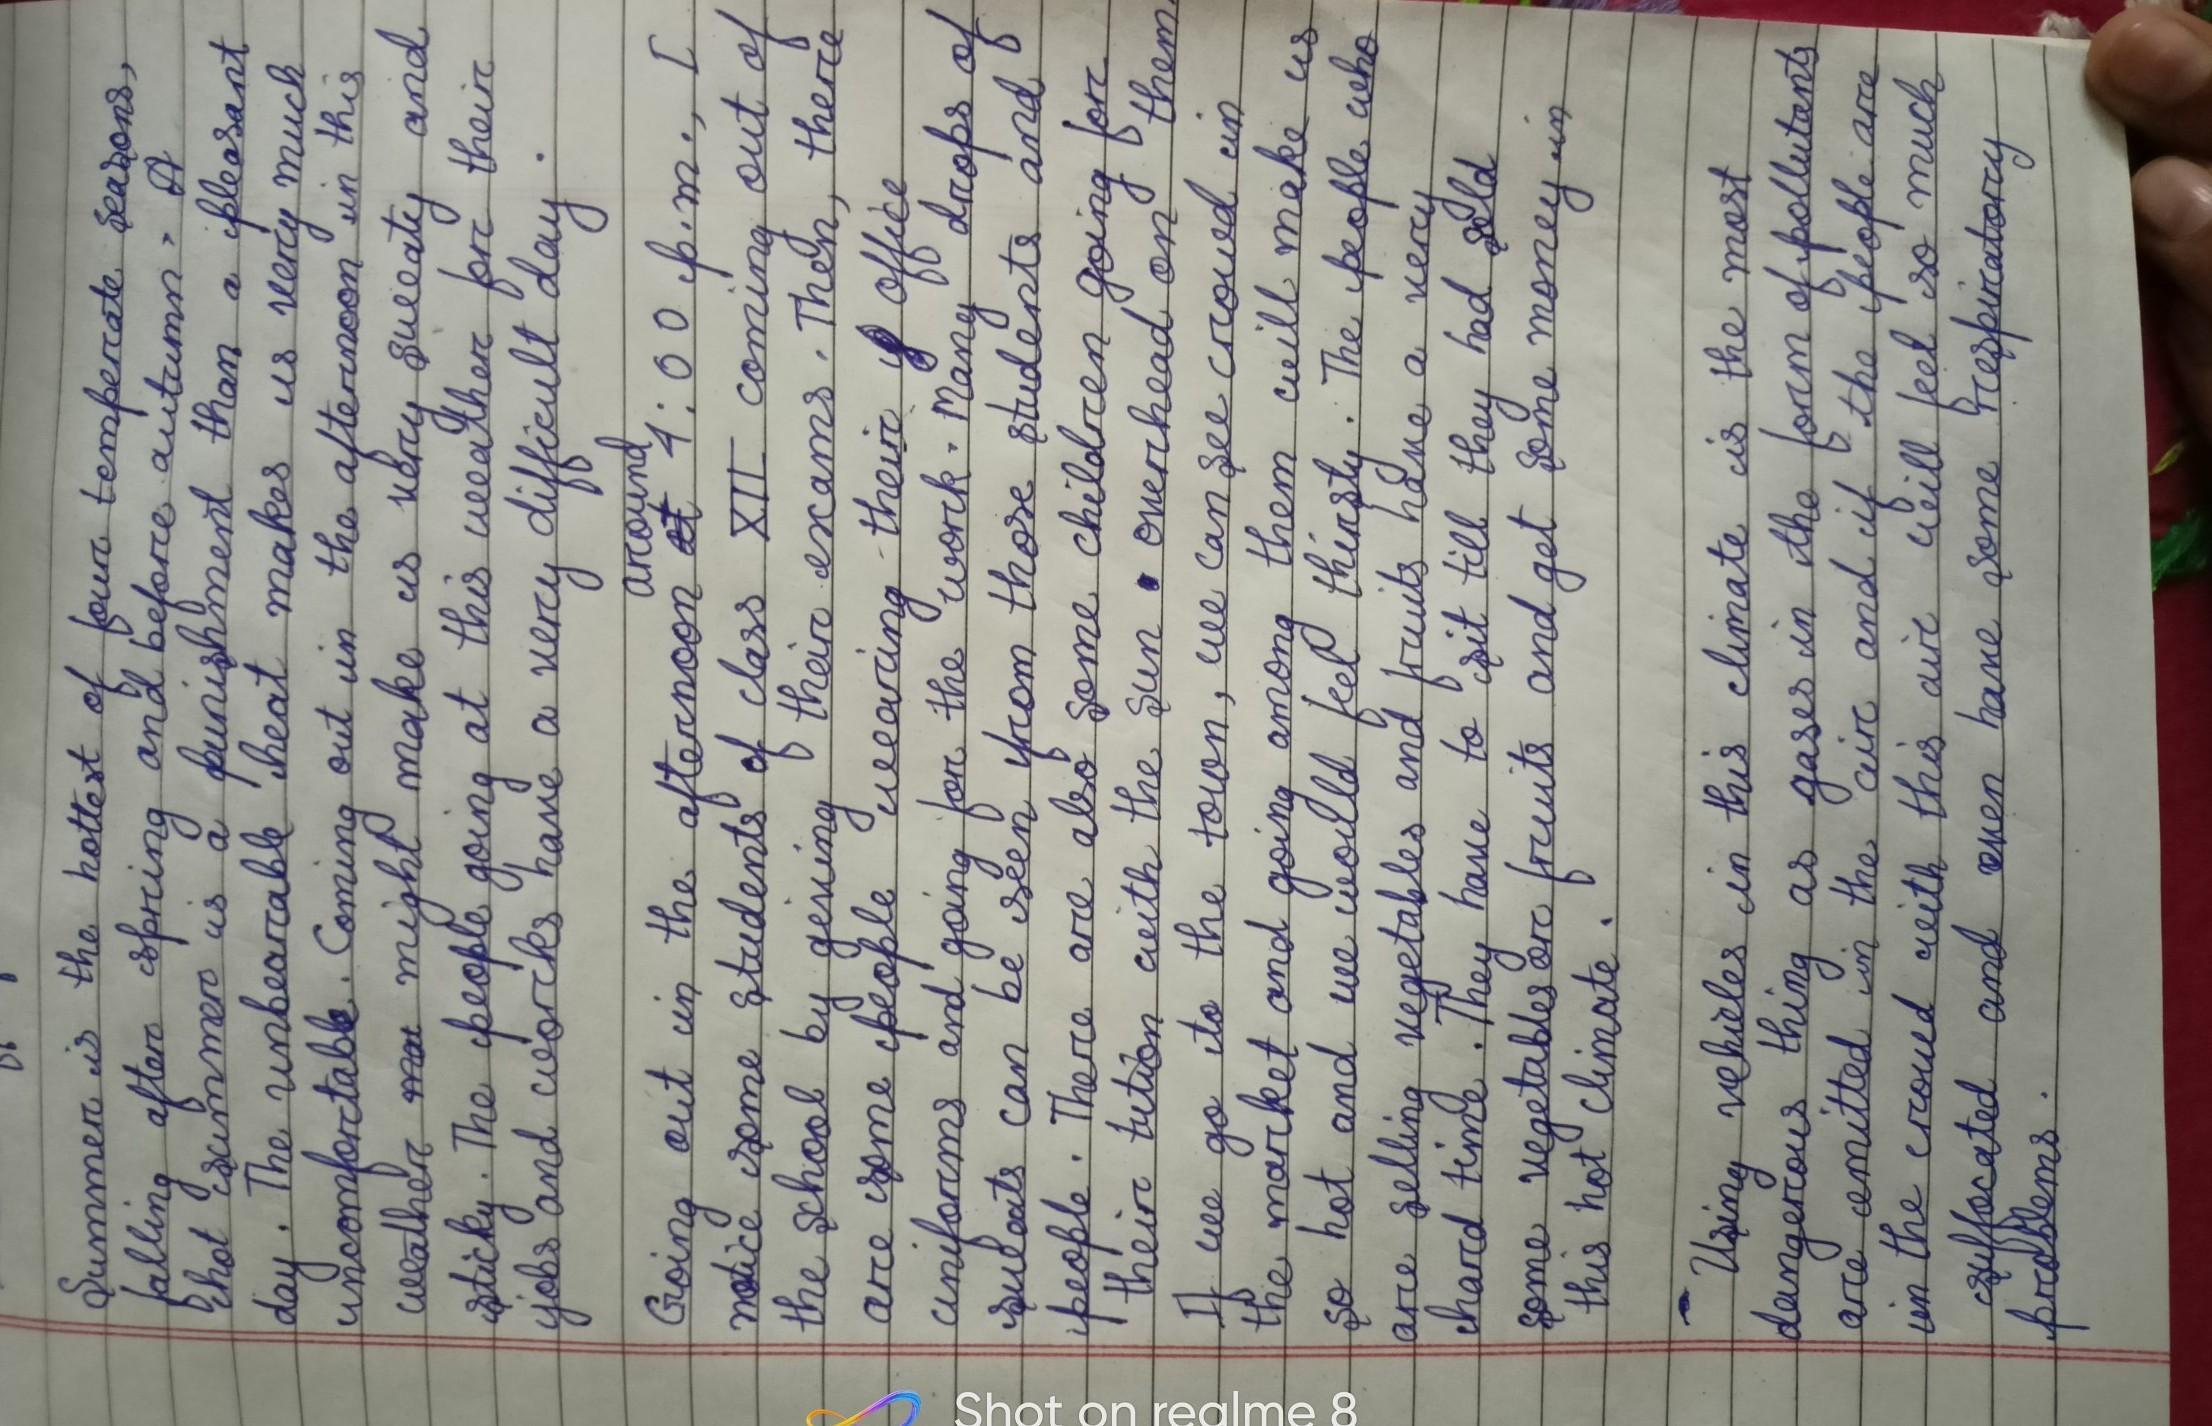 Summer is the hottest of four temperate seasons,
falling after spring and before autumn. A
hot summer is a punishment than a pleasant
day. The unbearable heat makes us very much
uncomfortable. Coming out in the afternoon in this
weather might make us very sweaty and
sticky. The people going at this weather for their
jobs and works have a very difficult day.
Going out in the afternoon around 4:00 p.m., I
notice some students of class XII coming out of
the school by giving their exams. Then, there
are some people wearing their office
uniforms and going for the work. Many drops of
sweats can be seen from those students and
people. There are also some children going for
their tution with the sun overhead on them.
If we go to the town, we can see crowd in
the market and going among them will make us
so hot and we would feel thirsty. The people who
are selling vegetables and fruits have a very
hard time. They have to sit till they had sold
some vegetables or fruits and get some money in
this hot climate.
Using vehicles in this climate is the most
dangerous thing as gases in the form of pollutants
are emitted in the air and if the people are
in the crowd with this air will feel so much
suffocated and even have some respiratory
problems.
Shot on realme 8